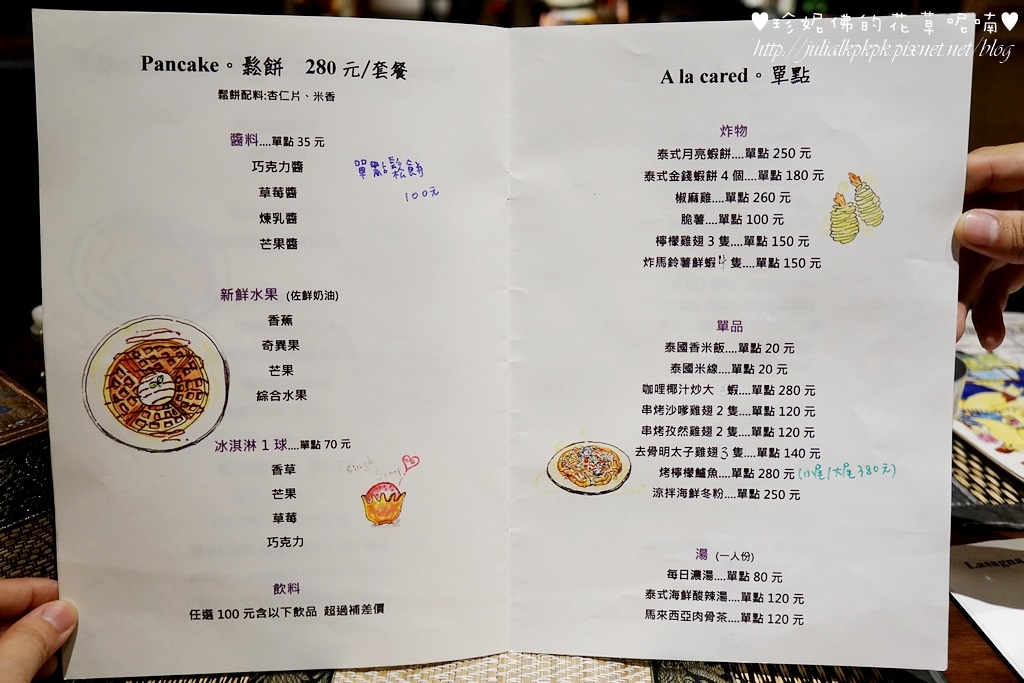 ♥珍妮佛的花草呢喃♥
http://julialkpkpk.pixnet.net/blog
Pancake。鬆餅 280 元/套餐
鬆餅配料:杏仁片、米香
醬料....單點 35 元
巧克力醬
單點鬆餅
100元
草莓醬
煉乳醬
芒果醬
新鮮水果 (佐鮮奶油)
香蕉
奇異果
芒果
綜合水果
冰淇淋 1 球....單點 70 元
香草
芒果
草莓
巧克力
飲料
任選 100 元含以下飲品 超過補差價
A la cared。單點
炸物
泰式月亮蝦餅....單點 250 元
泰式金錢蝦餅 4 個....單點 180 元
椒麻雞....單點 260 元
脆薯....單點 100 元
檸檬雞翅 3 隻....單點 150 元
炸馬鈴薯鮮蝦 4 隻....單點 150 元
單品
泰國香米飯....單點 20 元
泰國米線....單點 20 元
咖哩椰汁炒大 蝦....單點 280 元
串烤沙嗲雞翅 2 隻....單點 120 元
串烤孜然雞翅 2 隻....單點 120 元
去骨明太子雞翅 3 隻....單點 140 元
烤檸檬鱸魚....單點 280 元 (小尾/大尾380元)
涼拌海鮮冬粉....單點 250 元
湯 (一人份)
每日濃湯....單點 80 元
泰式海鮮酸辣湯....單點 120 元
馬來西亞肉骨茶....單點 120 元
Lasagna